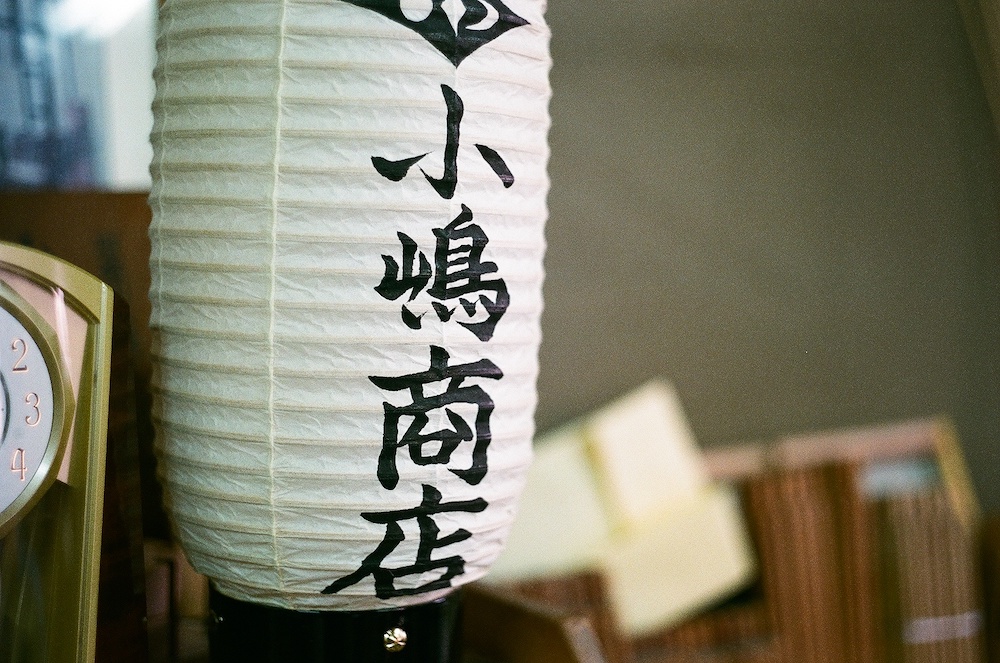 小嶋商店
2
3
4